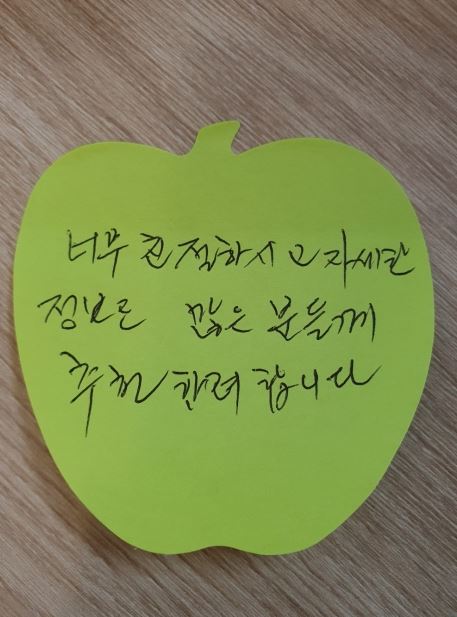 너무 친절하시고 자세한
정보로 많은 분들께
추천 한려 합니다